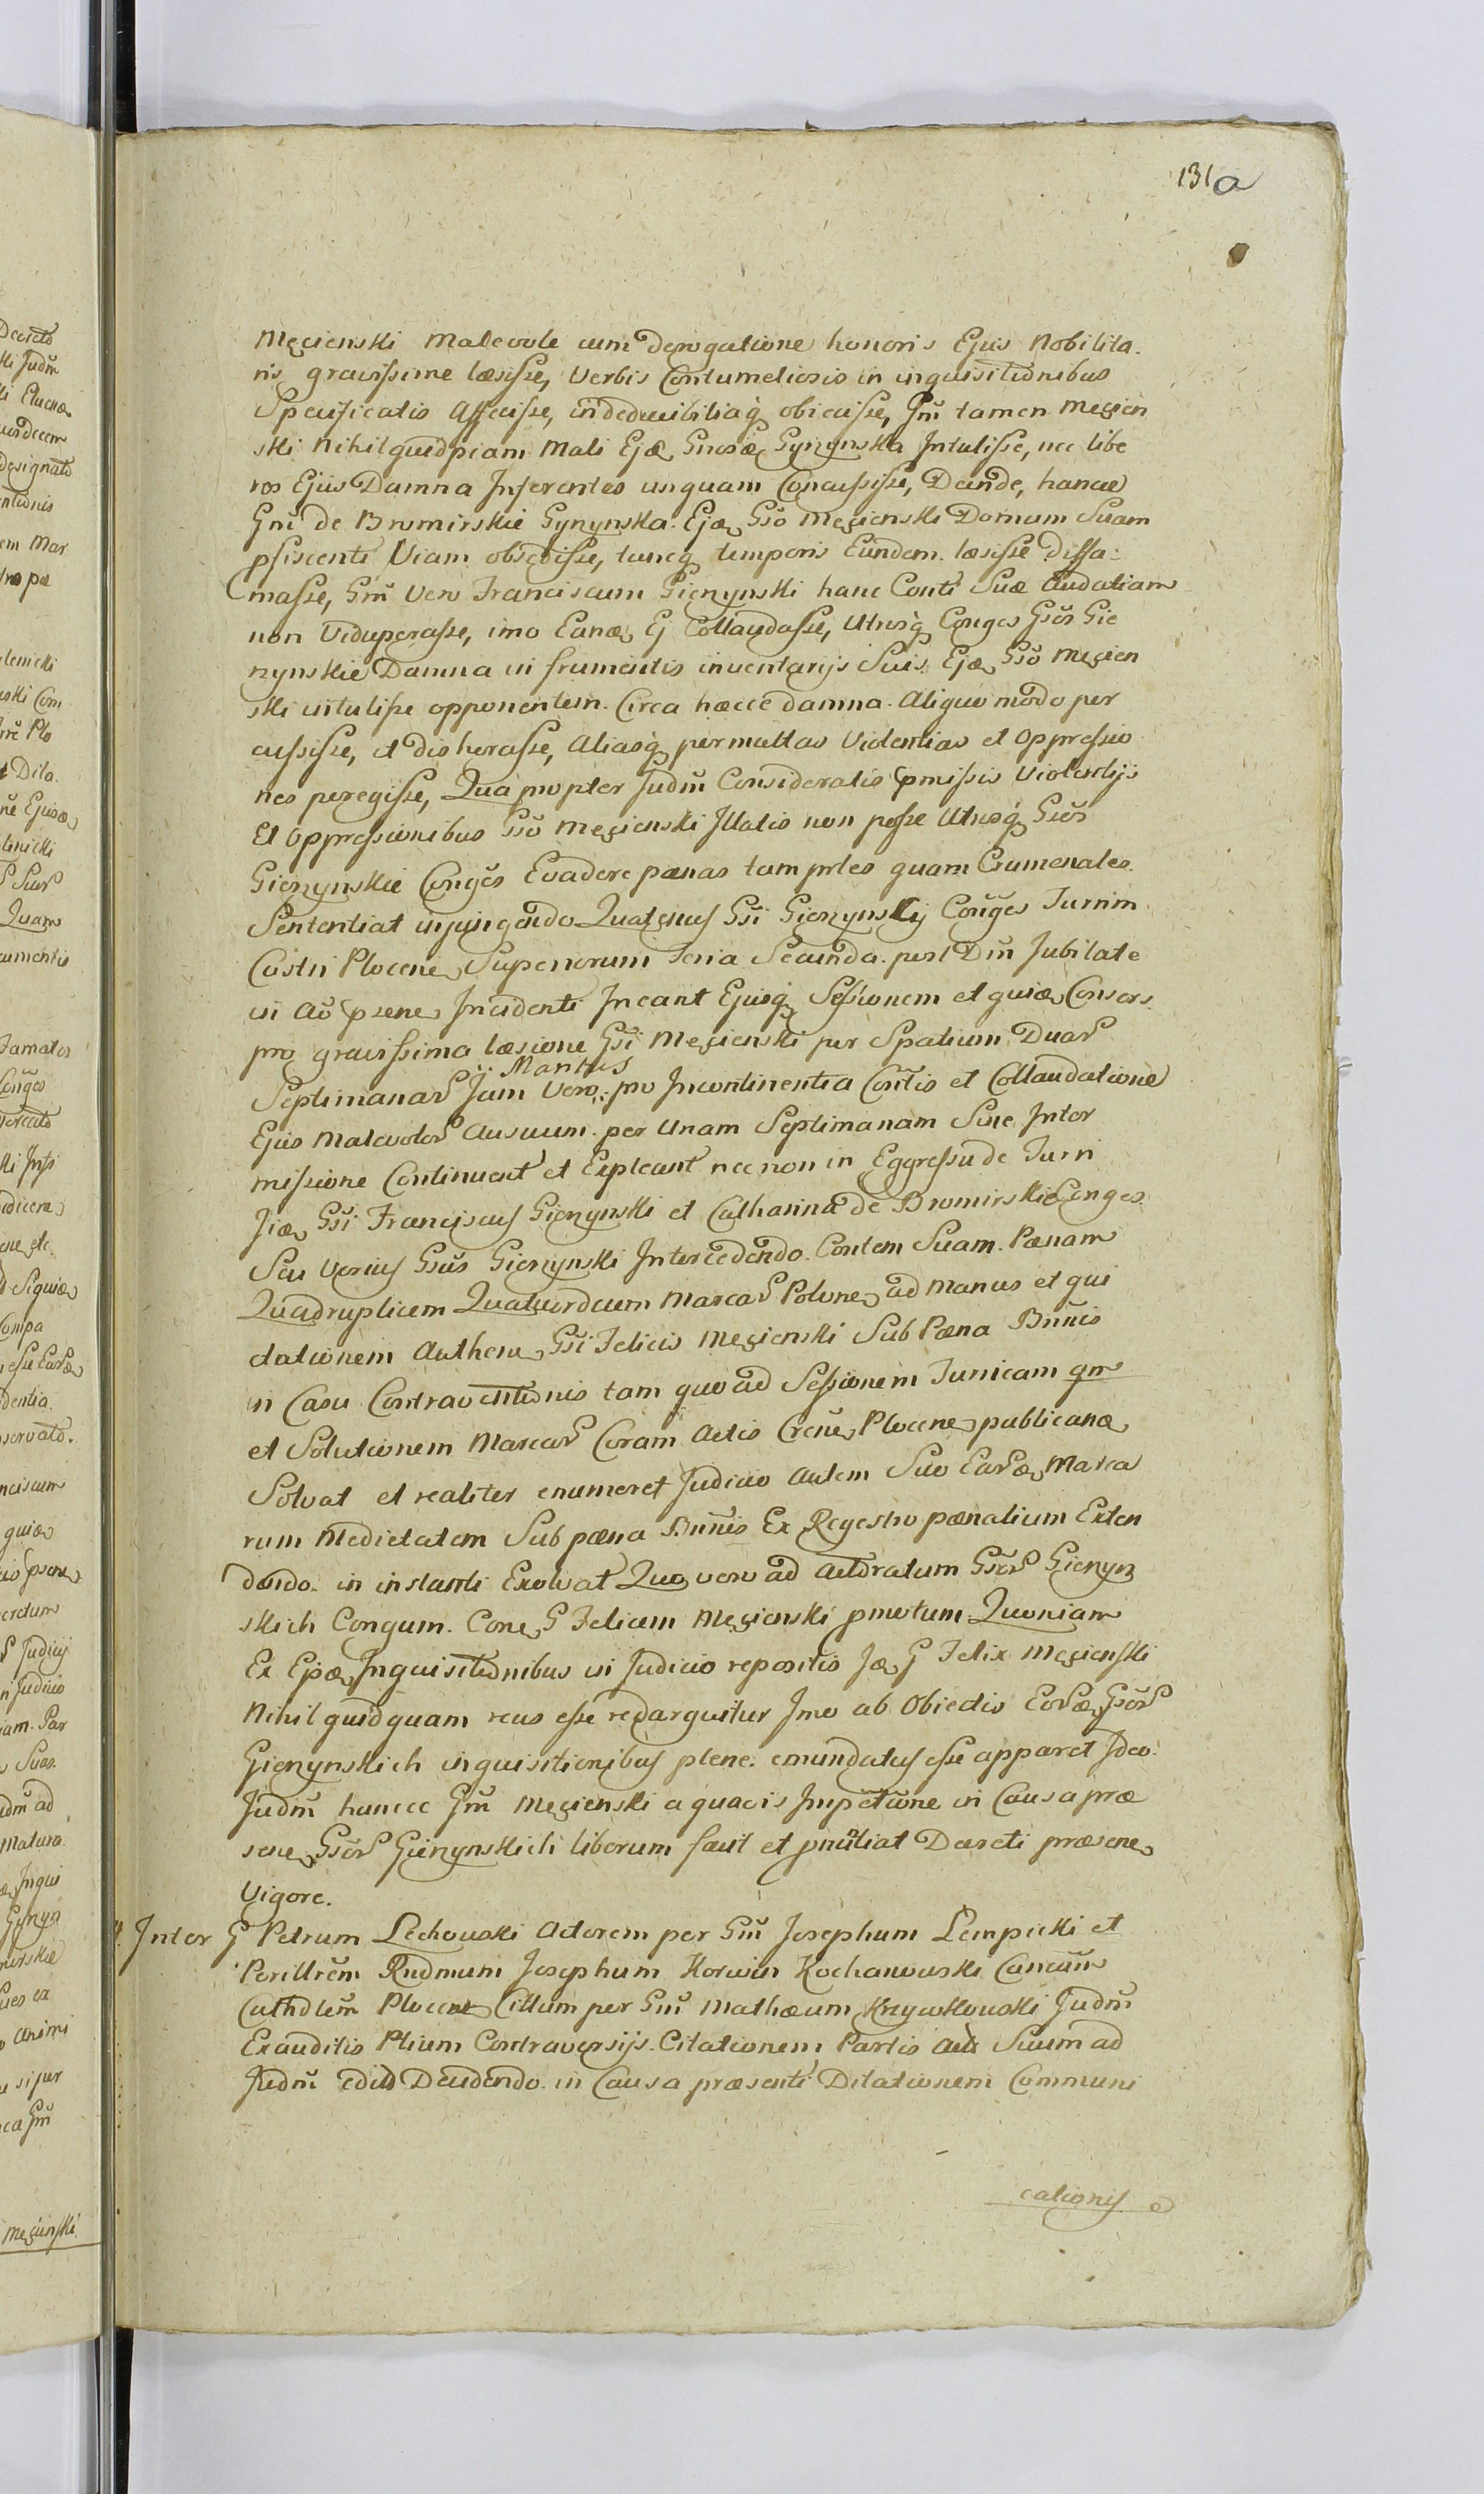 131a
Męcienski Malevole cum Derogatione honoris Ejus Nobilita.
ris gravissime læsisse, Verbis Contumeliosis in inquisitionibus
Specificatis Affecisse, indeducibiliaq obiecisse, Gm tamen Męcien
ski Nihil quidpiam Mali Ejæ Gnosæ Gynynska Intulisse, nec libe
ros Ejus Damna Inferentes unquam Concussisse, Deinde, hancce
Gm de Bromirskie Gynynska. Ejæ Gso Męcienski Domum Suam
pfiscenti Viam obsedisse, tuncq temporis Eundem. læsisse diffa:
masse, Gm Vero Franciscum Gienynski hanc Conti Suæ Audatiam
non Vidupcrasse, imo Eanæ Ej Collaudasse, Utrosq Conges Gsos Gie
nynskie Damna in frumentis inventarijs Suis Ejæ Gso Męcien
ski intulisse opponentem. Circa hæcce damna. Aliquo modo per
cussisse, et disherasse, Aliasq permultas Violentias et Oppressio
nes peregisse, Qua propter Judm Consideratis pmissis Violentijs
Et Oppressionibus Gso Męcienski Illatis non posse Utrosq Gsos
Gienynskie Conges Evadere pænas tam prles quam Crumenales.
Sententiat injungendo Quatenus Gsi Gienynskij Conges Turrim
Castri Plocene Superiorum Feria Secunda. post Dm Jubilate
in Ao psene Incidenti Ineant Ejusq Sessionem et quiæ Consors.
pro gravissima læsione Gsi Męcienski per Spatium Duar
Maritus
Septimanar Jam Vero pro Incontinentia Contis et Collaudatione
Ejus Malevolor Ausuum. per Unam Septimanam Sine Inter
missione Continuent et Expleant nec non in Eggressu de Turri
Jiæ Gsi Franciscus Gienynski et Catharina de Bromirskie Conges
Seu Verius Gsus Gienynski Intercedendo. Contem Suam. Pænam
Quadruplicem Quatuordecim Marcar Polone ad Manus et qui
etationem Authene Gsi Felicis Męcienski Sub Pæna Bnnis
in Casu Contraventionis tam quo ad Sessionem Turricam qm
et Solutionem Marcar Coram Actis Crene Plocene publicanæ
Solvat et realiter enumeret Judicio Autem Suo Earæ Marca
rum Medietatem Sub pæna Bnnis Ex Regestro pænalium Exten
dendo. in instanti Exolvat Quo vero ad Actoratum Gsor Gienyn
skich Congum. Cone G Felicem Męcienski pmotum Quoniam
Ex Ejsæ Inquisitionibus in Judicio repositis Jæ G Felix Męcienski
Nihil quidquam reus esse redarguitur Imo ab Obiectis Eoræ Gsor
Gienynskich inquisitionibus plene. emundatus esse apparet Ideo.
Judm huncce Gm Męcienski a quavis Impetione in Causa præ
sene Gsor Gienynskich liberum facit et pnntiat Decreti præsene
Vigore.
Inter G Petrum Lechowski Actorem per Gm Josephum Lempicki et
Perillrem Rndmum Josephum Korwin Kochanowski Cancum
Cathdlem Plocene Cittum per Gm Mathæum Krzywkowski Judm
Exauditis Ptium Contraversijs. Citationem Partis Act Suum ad
Judm edito Decidendo. in Causa præsenti Dilationem Communi
cationis